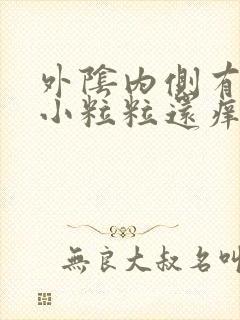 外陰内側有
小粒粒還痒
無良大叔名叫